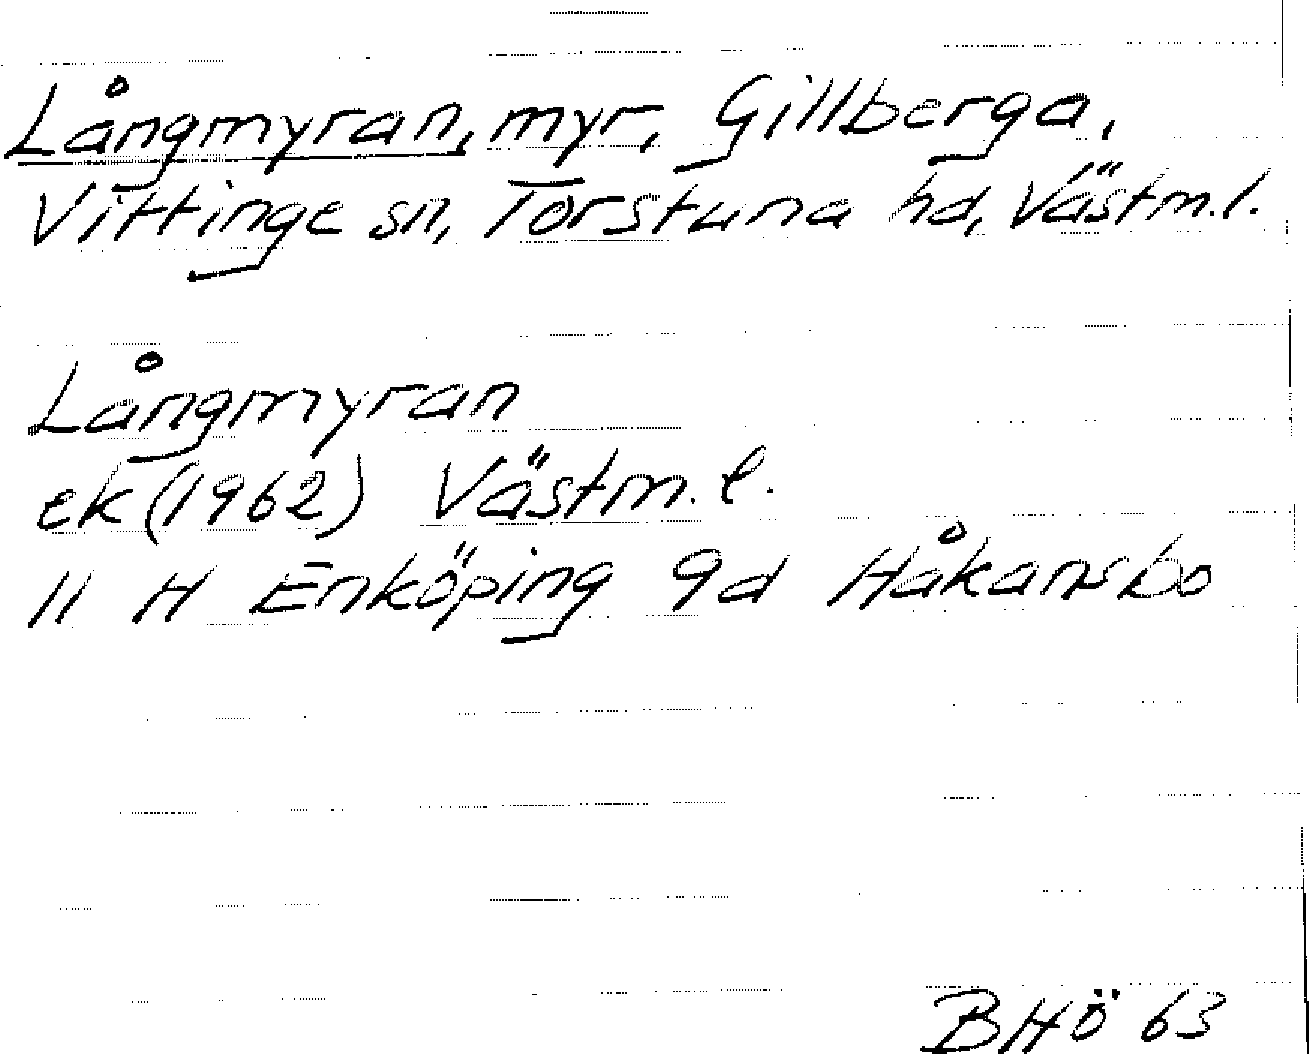 Långmyran, myr, Gillberga,
Vittinge sn, Torstuna hd, Västm.l.
Långmyran
ek (1962) Västm.l.
11 H Enköping 9d Håkansbo
BHÖ 63